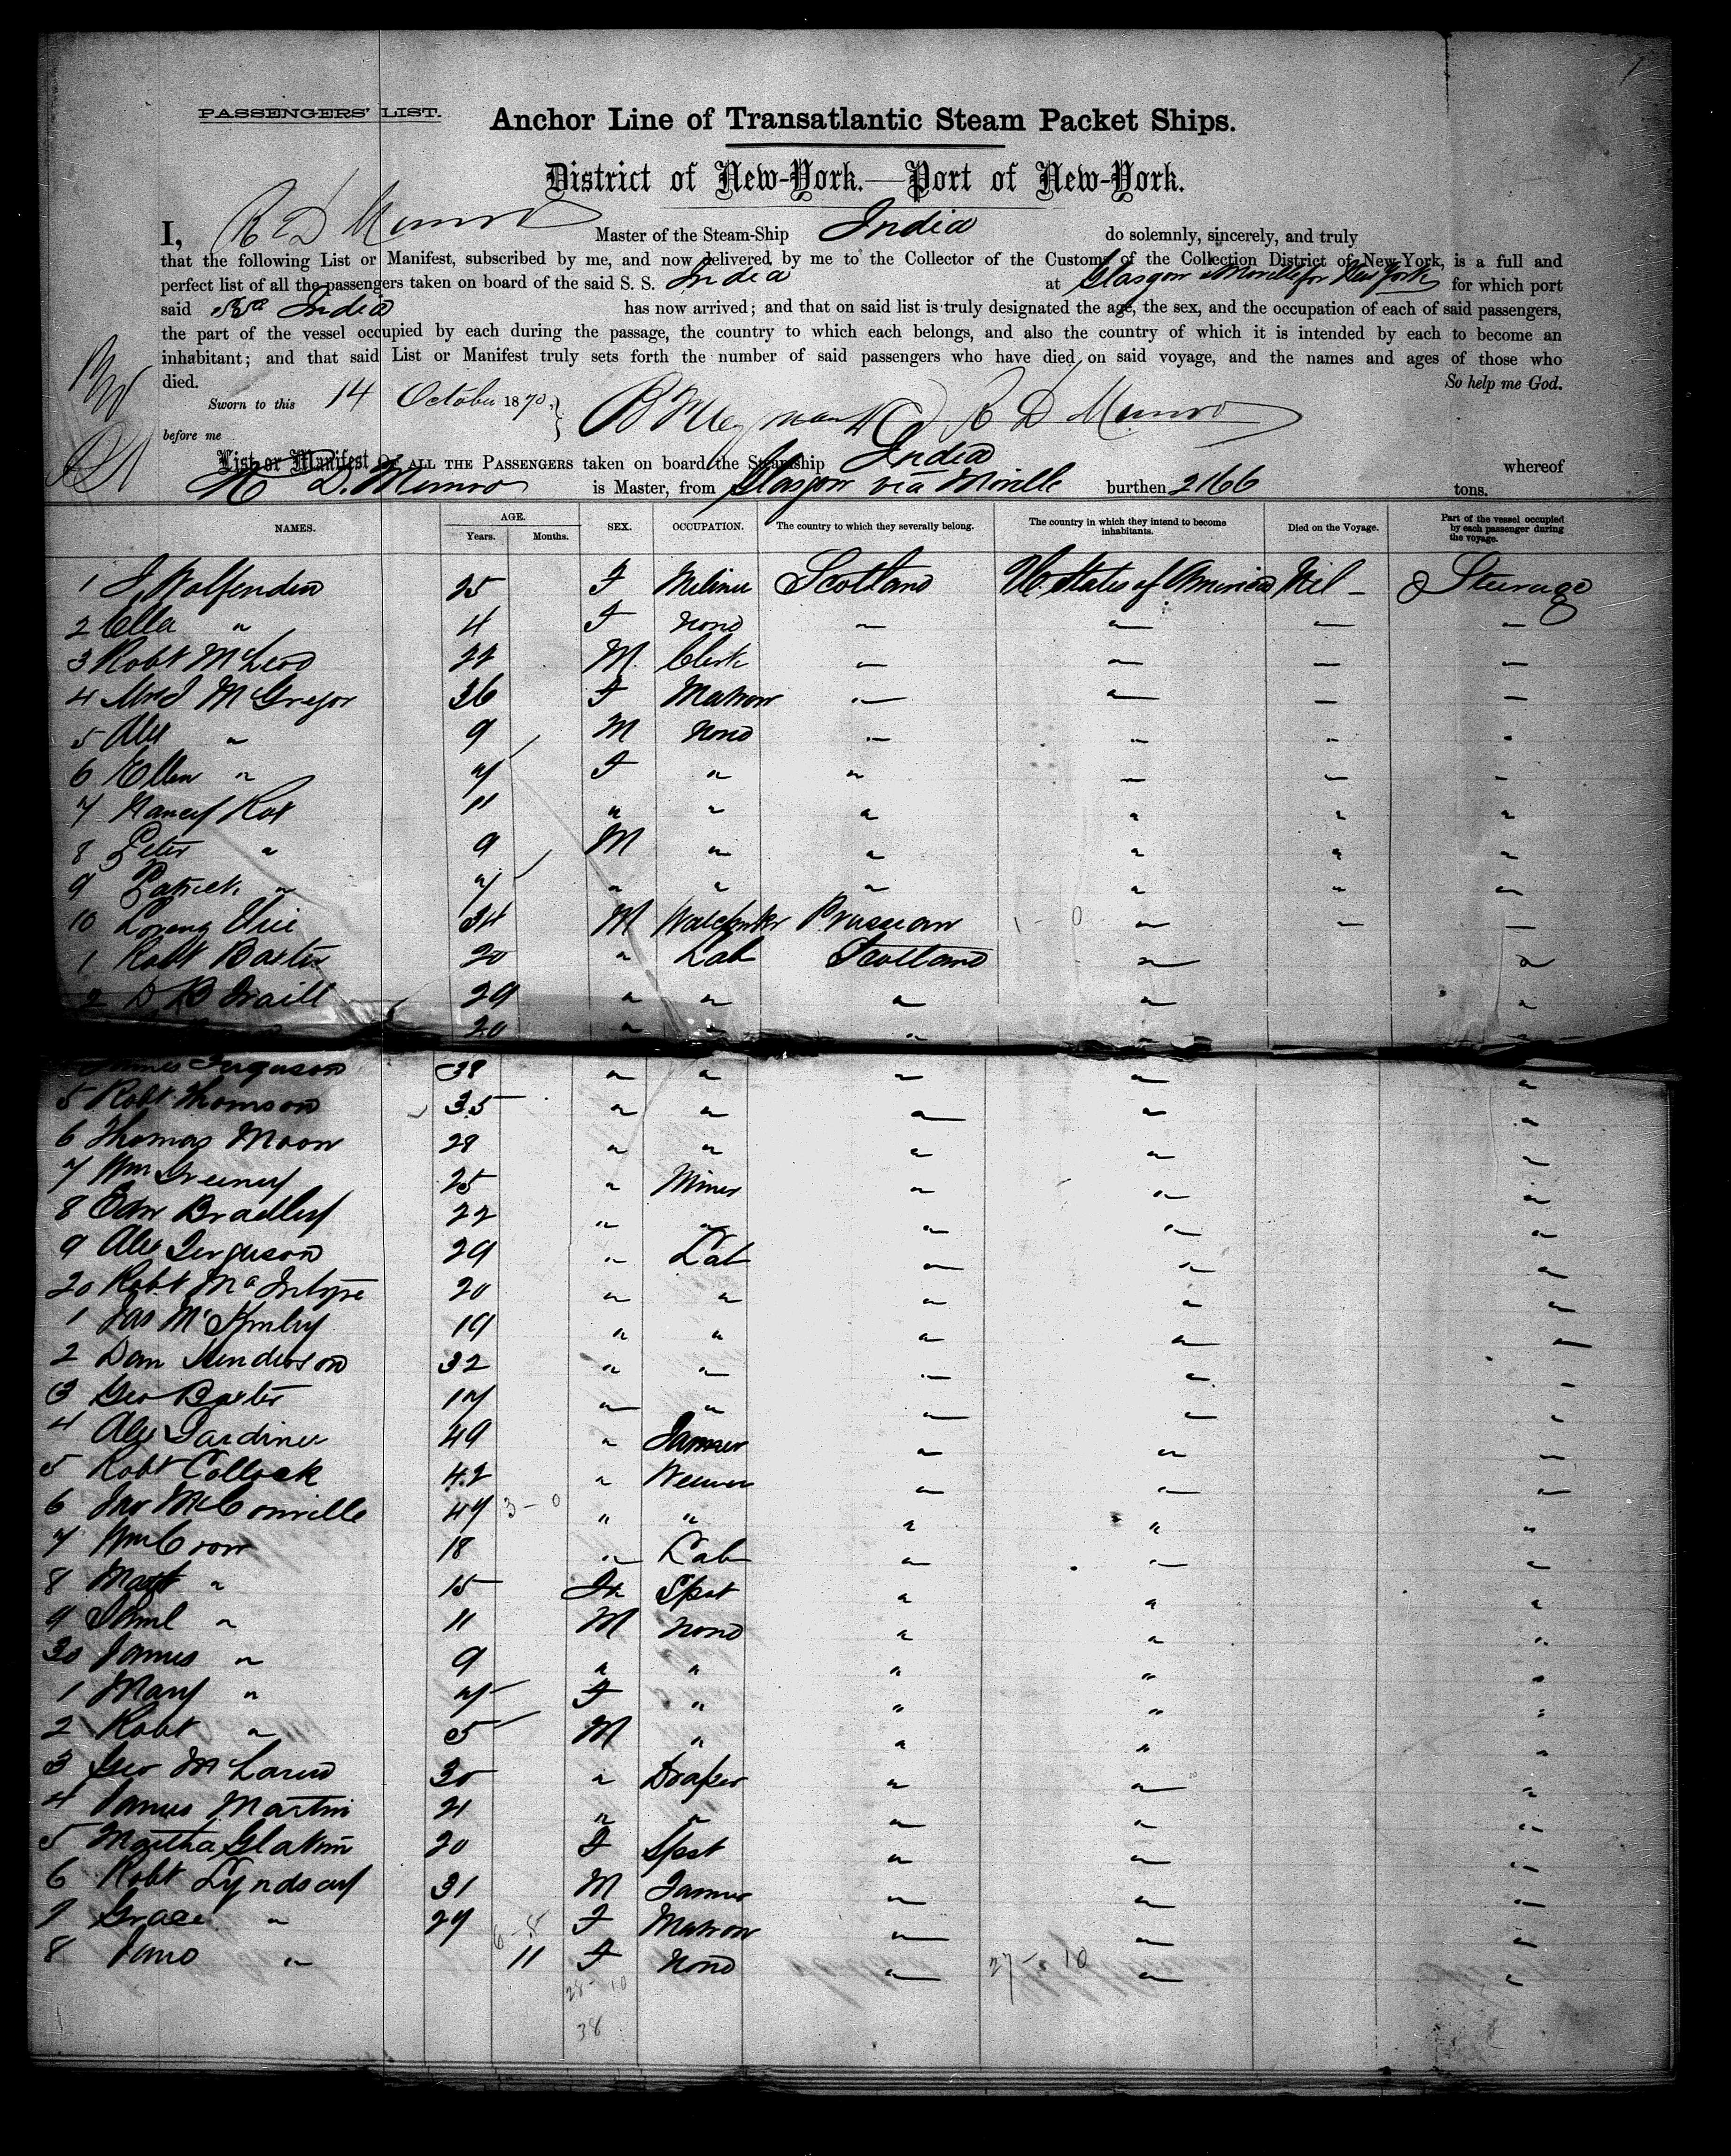 1
PASSENGERS' LIST.
Anchor Line of Transatlantic Steam Packet Ships.
District of New-York.—Port of New-York.
I, R D Munro Master of the Steam-Ship India do solemnly, sincerely, and truly
that the following List or Manifest, subscribed by me, and now delivered by me to the Collector of the Customs of the Collection District of New-York, is a full and
perfect list of all the passengers taken on board of the said S. S. India at Glasgow & Moville for New York for which port
said SS India has now arrived; and that on said list is truly designated the age, the sex, and the occupation of each of said passengers,
the part of the vessel occupied by each during the passage, the country to which each belongs, and also the country of which it is intended by each to become an
inhabitant; and that said List or Manifest truly sets forth the number of said passengers who have died on said voyage, and the names and ages of those who
died. So help me God.
Sworn to this 14 October 1870, R D Munro
before me
List or Manifest OF ALL THE PASSENGERS taken on board the Steamship India whereof
R D. Munro is Master, from Glasgow via Moville burthen 2166 tons.
NAMES. AGE. Years. Months. SEX. OCCUPATION. The country to which they severally belong. The country in which they intend to become inhabitants. Died on the Voyage. Part of the vessel occupied by each passenger during the voyage.
1 J Wolfenden 25 F Miliner Scotland U States of America Nil - Steerage
2 Ella " 4 F None " " " "
3 Robt McLeod 22 M. Clerk " " " "
4 Mrs J McGregor 36 F Matron " " " "
5 Alex " 9 M None " " " "
6 Ellen " 7 F " " " " "
7 Nancy Roy 11 " " " " " "
8 Peter " 9 M " " " " "
9 Patrick " 7 " " " " " "
10 34 M Prussian " " "
1 Robt Baxter 20 " Lab Scotland " "
2 D B Traill 29 " " " " "
20 " " " "
James Ferguson 38 " " " " "
5 Robt Thomson 35 " " " " "
6 Thomas Moon 28 " " " " "
7 Wm Greeney 25 " Miner " " "
8 Edw Bradley 22 " " " " "
9 Alex Ferguson 29 " Lab " " "
20 Robt McIntyre 20 " " " " "
1 Jas McKinley 19 " " " " "
2 Dan Henderson 32 " " " " "
3 Geo Baxter 17 " " " " "
4 Alex Gardiner 49 " Farmer " " "
5 Robt Collock 42 " Weaver " " "
6 Jno McConville 47 " " " " "
7 Wm Crow 18 " Lab " " "
8 Matt " 15 Fe Spst " " "
9 Saml " 11 M None " " "
30 James " 9 " " " " "
1 Mary " 7 F " " " "
2 Robt " 5 M " " " "
3 Geo McLaren 30 " Draper " " "
4 James Martin 21 " " " " "
5 Martha 20 F Spst " " "
6 Robt Lyndsay 31 M Farmer " " "
7 Grace " 27 F Matron " " "
8 Jane " 11 F None " " "
28 - 10
27 - 10
38